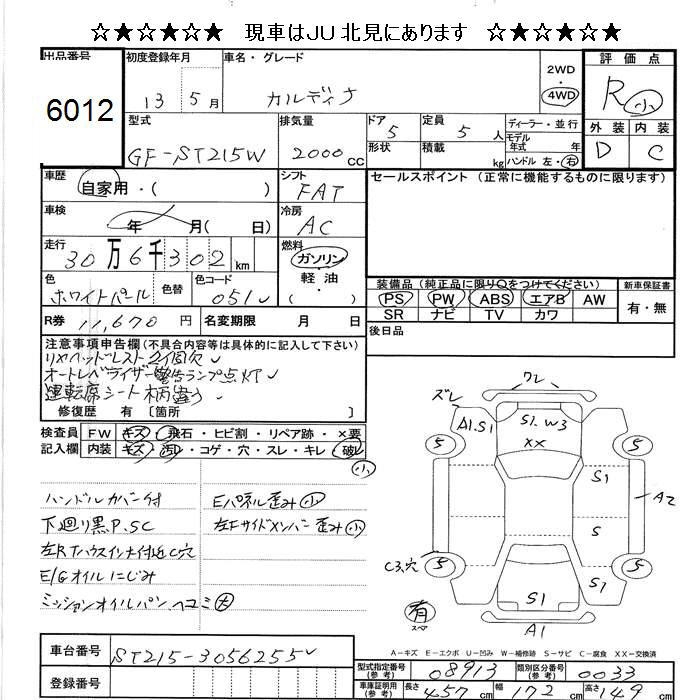 ☆★☆★☆★☆ 現車はJU北見にあります ☆★☆★☆★☆
出品番号 6012
初度登録年月 13 5月
車名・グレード カルディナ
2WD 4WD
評価点 R 小
外装 D 内装 C
型式 GF-ST215W
排気量 2000CC
ドア 5 形状
定員 5人 積載 kg
ディーラー・並行
モデル年式 年
ハンドル 左・右
車歴 自家用・( )
シフト FAT
車検 年 月( 日)
冷房 AC
走行 30万6千302km
燃料 ガソリン・軽油・( )
色 ホワイトパール 色替 色コード 051
R券 11,670円 名変期限 月 日
セールスポイント (正常に機能するものに限ります)
装備品 (純正品に限り○をつけてください)
PS PW ABS エアB AW
SR ナビ TV カワ
新車保証書 有・無
後日品
注意事項申告欄(不具合内容等は具体的に記入して下さい)
リヤヘッドレスト2個欠
オートレベライザー警告ランプ点灯
運転席シート柄違う
修復歴 有〔箇所 〕
検査員記入欄
FW キズ・飛石・ヒビ割・リペア跡・×要
内装 キズ・汚レ・コゲ・穴・スレ・キレ・破レ 小
ハンドルカバー付
下廻り黒P.SC
左RTハウスインナ付近C穴
E/Gオイルにじみ
ミッションオイルパンヘコミ大
Eパネル歪み小
左Fサイドメンバー歪み小
ズレ ワレ
A1.S1 S1.W3 XX
5 5
S1 A2
S
C3.穴 5 S1 5
S1
有 スペア
A1
A-キズ E-エクボ U-凹み W-補修跡 S-サビ C-腐食 XX-交換済
車台番号 ST215-3056255
登録番号
型式指定番号(参考) 08913 類別区分番号(参考) 0033
車庫証明用(参考) 長さ 457cm 幅 172cm 高さ 149cm